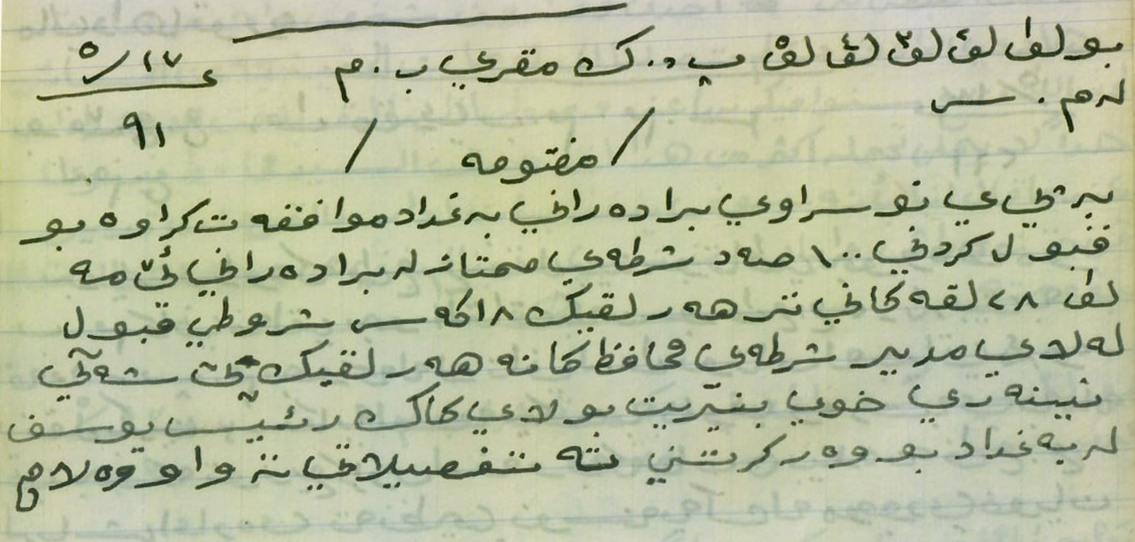 بو لق١ لق٢ لق٣ لق٤ لق٥ پ . ك مقري ب . م ١٧/٥
له م . س ٩١
/ مفتومه /
به تي ي نوسراوي براده راني به غداد موافقه ت كراوه بو
قبول كردني ١٠٠ صه د شرطه ي ممتاز له براده راني ئيمه
لق ٢٨ لقه كاني تر هه ر لقيك ١٨ كه س شروطي قبول
له لاي مدير شرطه ي محافظ كانه هه ر لقيك
نينه ري خوي بنيريت بو لاي كاك رئيس يوسف
له به غداد بو وه ر كرتني تفصيلاتي ته واو وه لام